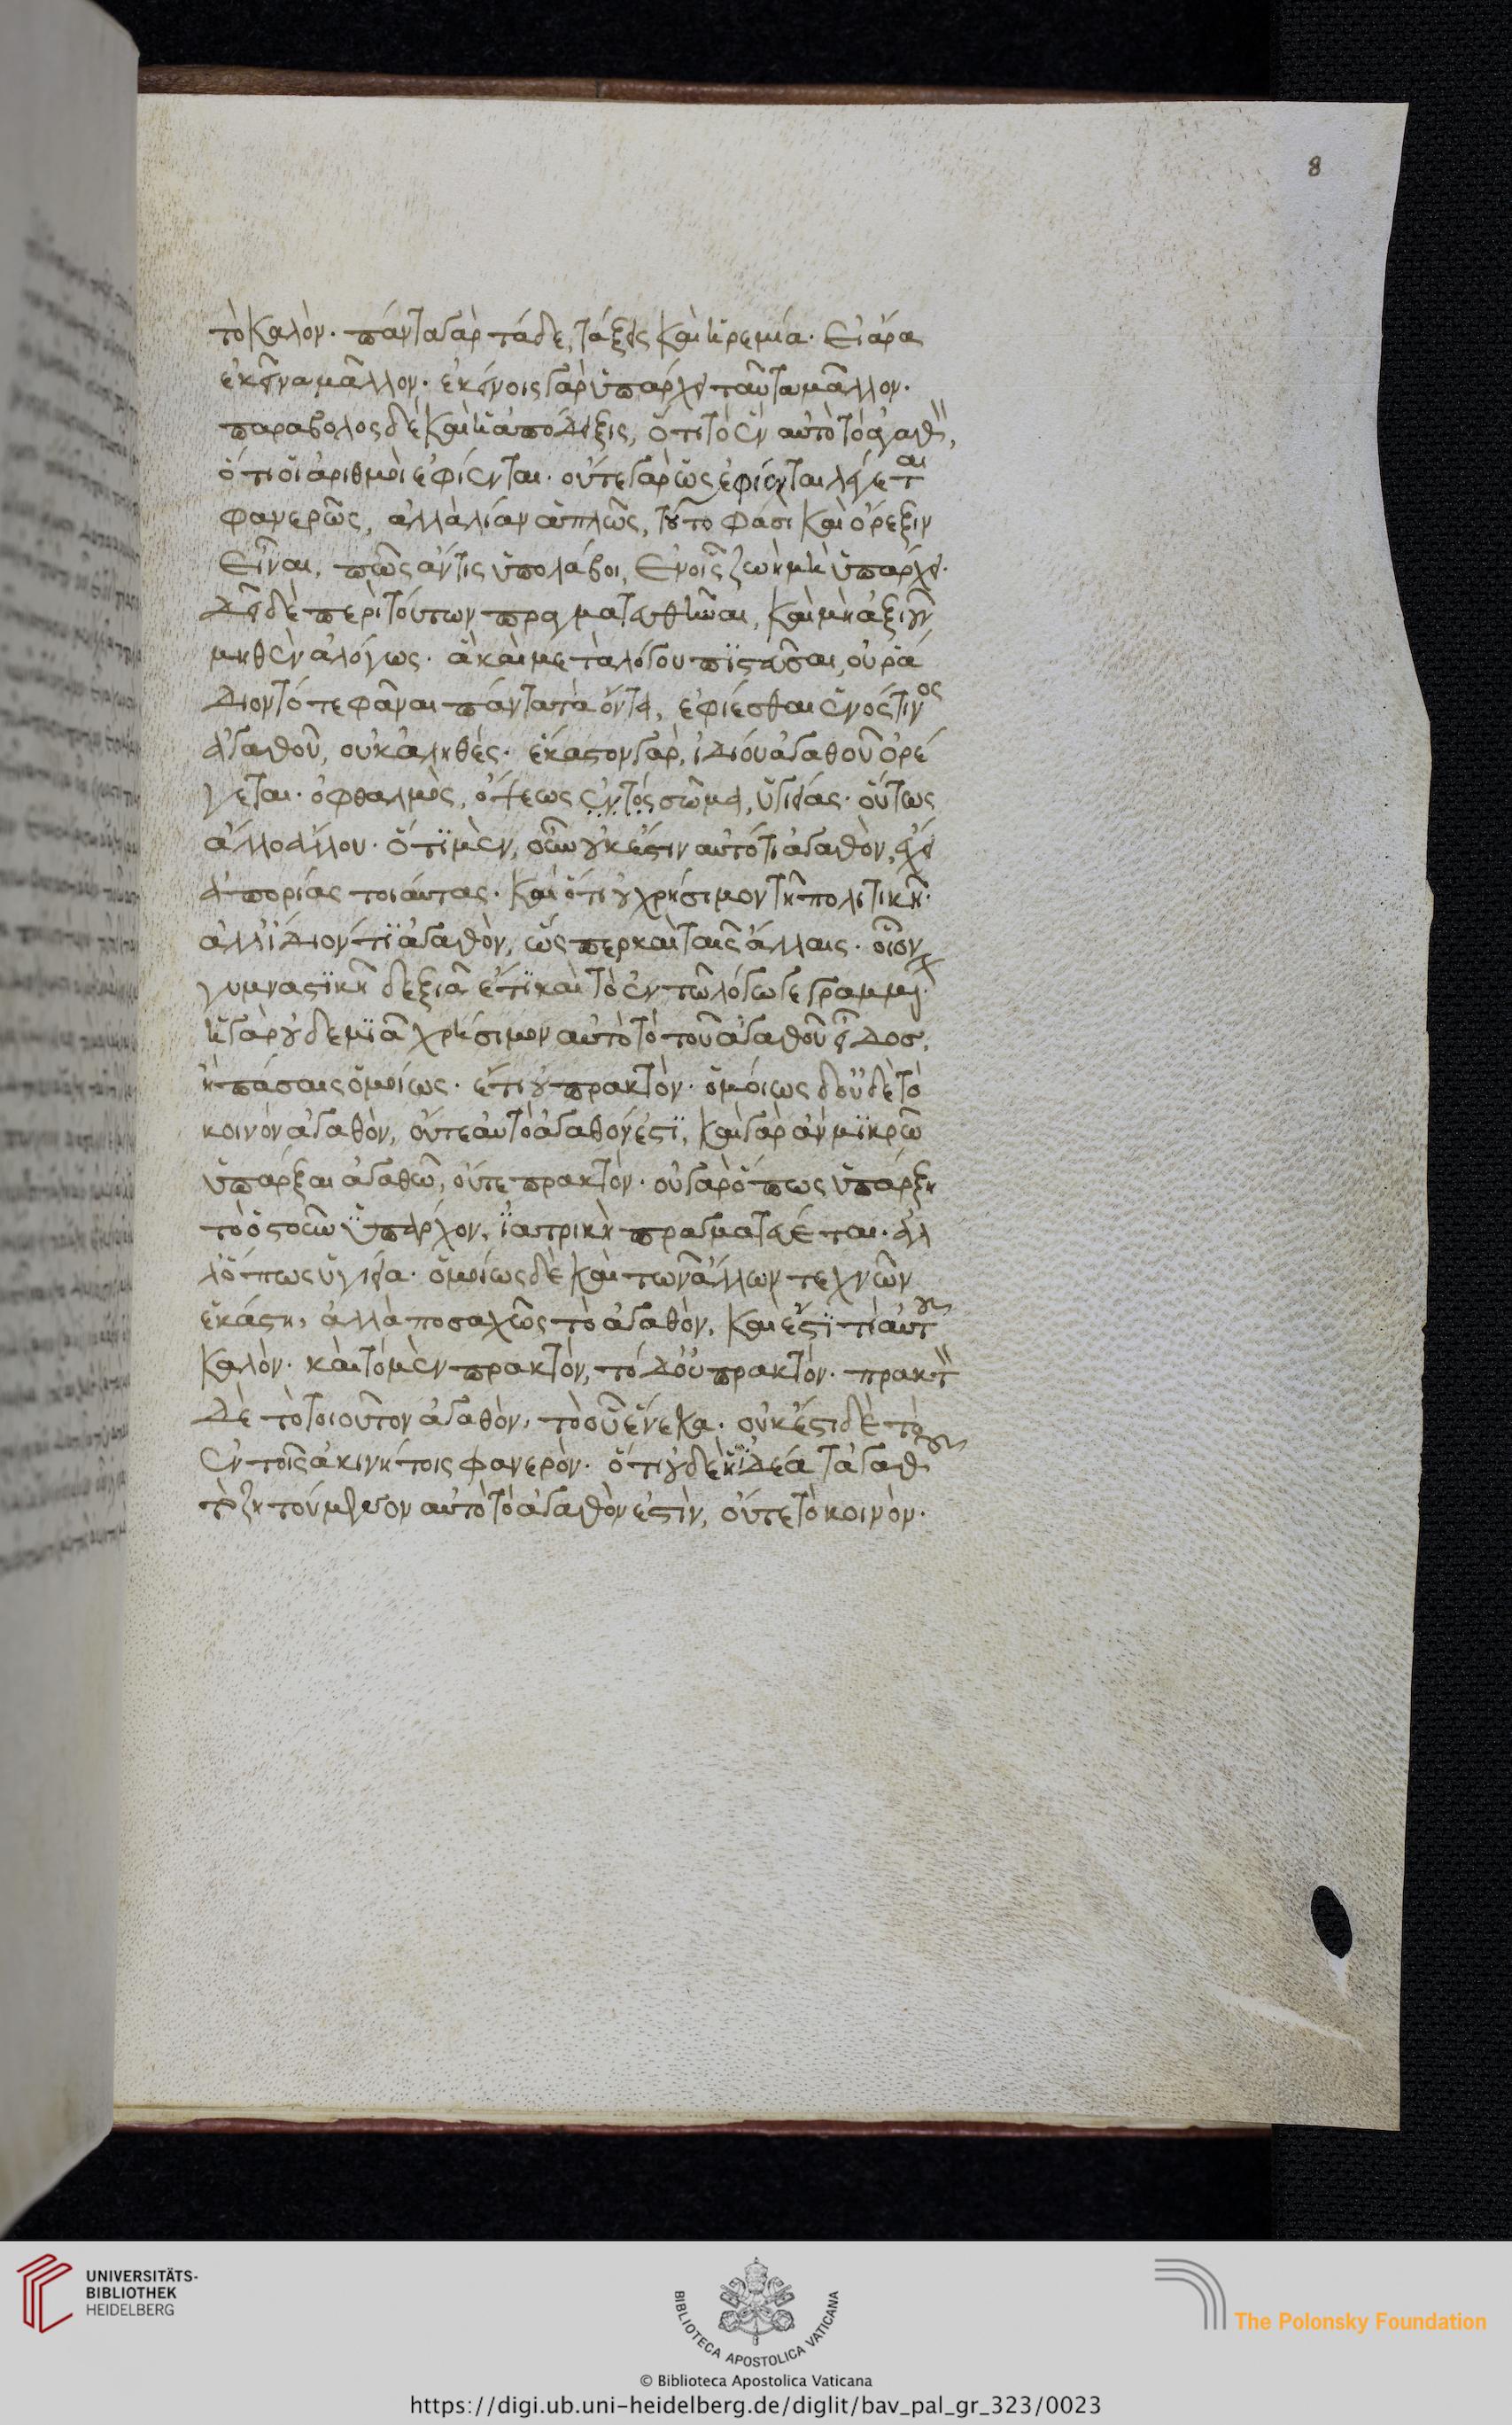 8
τὸ καλὸν· πάντα γὰρ τάδε, τάξεις καὶ ἠρεμία· εἰ ἄρα
ἐκεῖνα μᾶλλον· ἐκείνοις γὰρ ὑπάρχει ταῦτα μᾶλλον·
παράβολος δὲ καὶ ἡ ἀπόδειξις, ὅτι τὸ ἓν αὐτὸ τὸ ἀγαθ,
ὅτι οἱ ἀριθμοὶ ἐφίενται· οὔτε γὰρ ὡς ἐφίενται λέγεται
φανερῶς, ἀλλὰ λίαν ἁπλῶς τοῦτο φασὶ καὶ ὄρεξιν
εἶναι, πῶς ἄν τις ὑπολάβοι, ἐν οἷς ζωὴ μὴ ὑπάρχει·
δεῖ δὲ περὶ τούτων πραγματευθῆναι, καὶ μὴ ἀξιοῦν
μηθὲν ἀλόγως· ἃ καὶ μετὰ λόγου πιστεῦσαι, οὐ ῥά
διον τό τε φάναι πάντα τὰ ὄντα, ἐφίεσθαι ἑνός τινος
ἀγαθοῦ, οὐκ ἀληθές· ἕκαστον γὰρ, ἰδίου ἀγαθοῦ ὀρέ
γεται· ὀφθαλμὸς, ὄψεως ἐντός σῶμα, ὑγιείας· οὕτως
ἄλλο ἄλλου· ὅτι μὲν, οὖν οὐκ ἔστιν αὐτό τι ἀγαθὸν, ἔχει
ἀπορίας τοιαύτας· καὶ ὅτι οὐ χρήσιμον τῆ πολιτικῆ·
ἀλλ' ἴδιόν τι ἀγαθὸν, ὥσπερ καὶ ταῖς ἄλλαις· οἷον
γυμναστικῆ δεξιᾶ ἔτι καὶ τὸ ἐν τῶ λόγω γεγραμμέ·
ἢ γὰρ οὐδεμιᾶ χρήσιμον αὐτὸ τὸ τοῦ ἀγαθοῦ εἶδοσ,
ἢ πάσαις ὁμοίως· ἔτι οὐ πρακτὸν· ὁμοίως δ' οὐδὲ τὸ
κοινὸν ἀγαθὸν, οὔτε αὐτὸ ἀγαθόν ἐστι, καὶ γὰρ ἂν μικρῶ
ὑπάρξαι ἀγαθῶ, οὔτε πρακτὸν· οὐ γὰρ ὅπως ὑπάρξη
τὸ ὁστοῦν ὑπάρχον, ἰατρικὴ πραγματεύεται· ἀλ
λ' ὅπως ὑγίεια· ὁμοίως δὲ καὶ τῶν ἄλλων τεχνῶν
ἑκάστη, ἀλλὰ ποσαχῶς τὸ ἀγαθὸν, καὶ ἔστι τι αὐτοῦ
καλὸν· καὶ τὸ μὲν πρακτὸν, τὸ δ' οὐ πρακτόν· πρακτ
δὲ τὸ τοιοῦτον ἀγαθὸν, τὸ οὗ ἕνεκα· οὐκ ἔστι δὲ τὸ
ἐν τοῖς ἀκινήτοις φανερὸν· ὅτι οὐδὲ ἡ ἰδέα τἀγαθοῦ
τὸ ζητούμενον αὐτὸ τὸ ἀγαθὸν ἐστὶν, οὔτε τὸ κοινὸν·
UNIVERSITÄTS-
BIBLIOTHEK
HEIDELBERG
BIBLIOTECA APOSTOLICA VATICANA
The Polonsky Foundation
© Biblioteca Apostolica Vaticana
https://digi.ub.uni-heidelberg.de/diglit/bav_pal_gr_323/0023